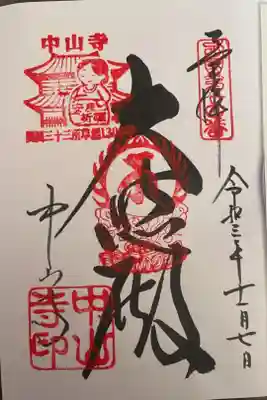 奉拝
令和三年十一月七日
大悲閣
中山寺
中山寺
安産祈願
西国三十三所草創1300
中山寺印